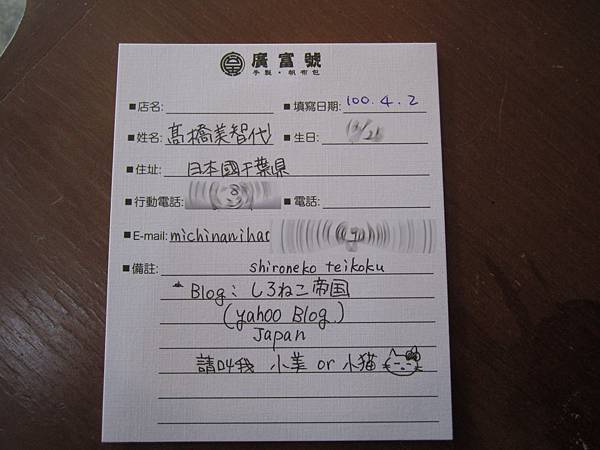 廣富號
手製・帆布包
■店名: ■填寫日期: 100.4.2
■姓名: 髙橋美智代 ■生日: 12/25
■住址: 日本國千葉県
■行動電話: ■電話:
■E-mail: michinanihat
■備註: shironeko teikoku
Blog: しろねこ帝国
(yahoo Blog)
Japan
請叫我 小美 or 小猫